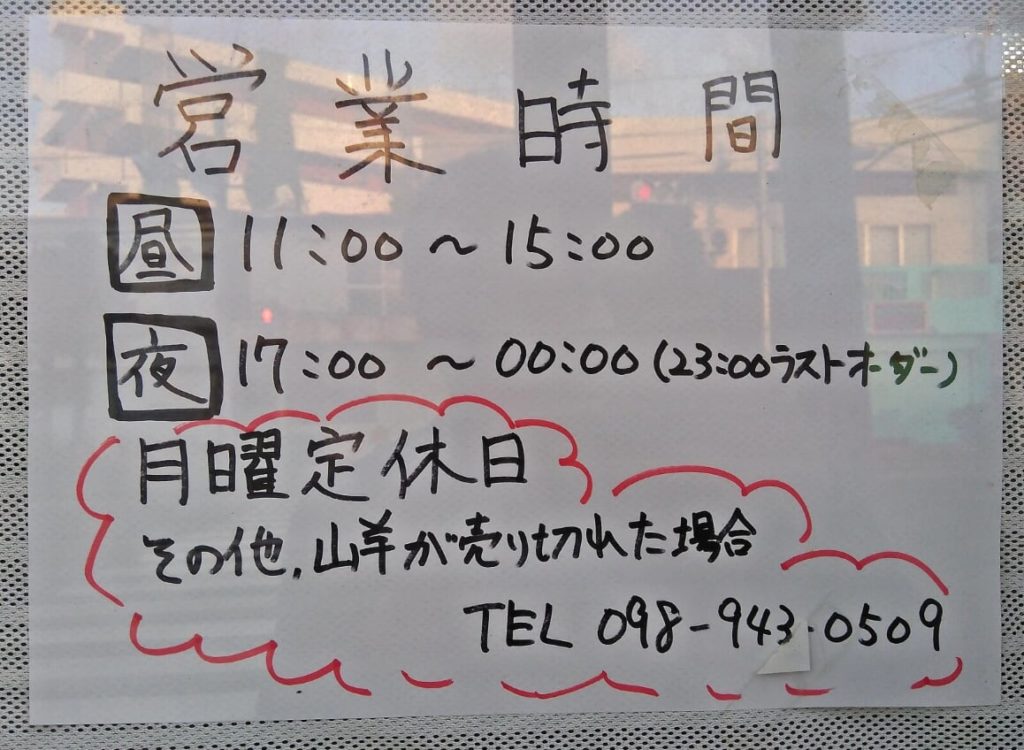 営業時間
昼 11:00 〜 15:00
夜 17:00 〜 00:00 (23:00ラストオーダー)
月曜定休日
その他、山羊が売り切れた場合
TEL 098-943-0509